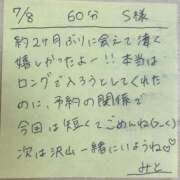 7/8 60分 S様
約2ヶ月ぶりに会えて凄く
嬉しかったよー!!本当は
ロングで入ろうとしてくれた
のに、予約の関係で
今回は短くてごめんね(>_<)
次は沢山一緒にいようね♡
みと